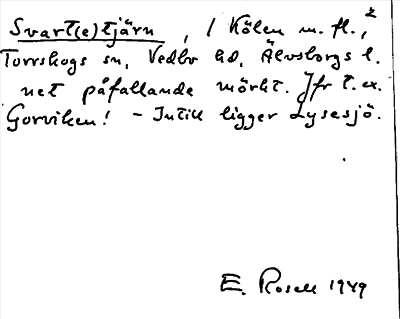 Svart(e)tjärn, / Kölen m. fl., z
Torrskogs sn, Vedbo hd, Älvsborgs l.
net påfallande mörkt. Jfr t. ex.
Gorviken! – Intill ligger Lysesjö.
E. Rosell 1949